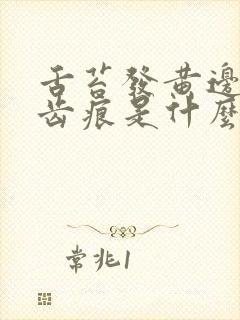 舌苔發黃邊
齿痕是什麼
常兆1